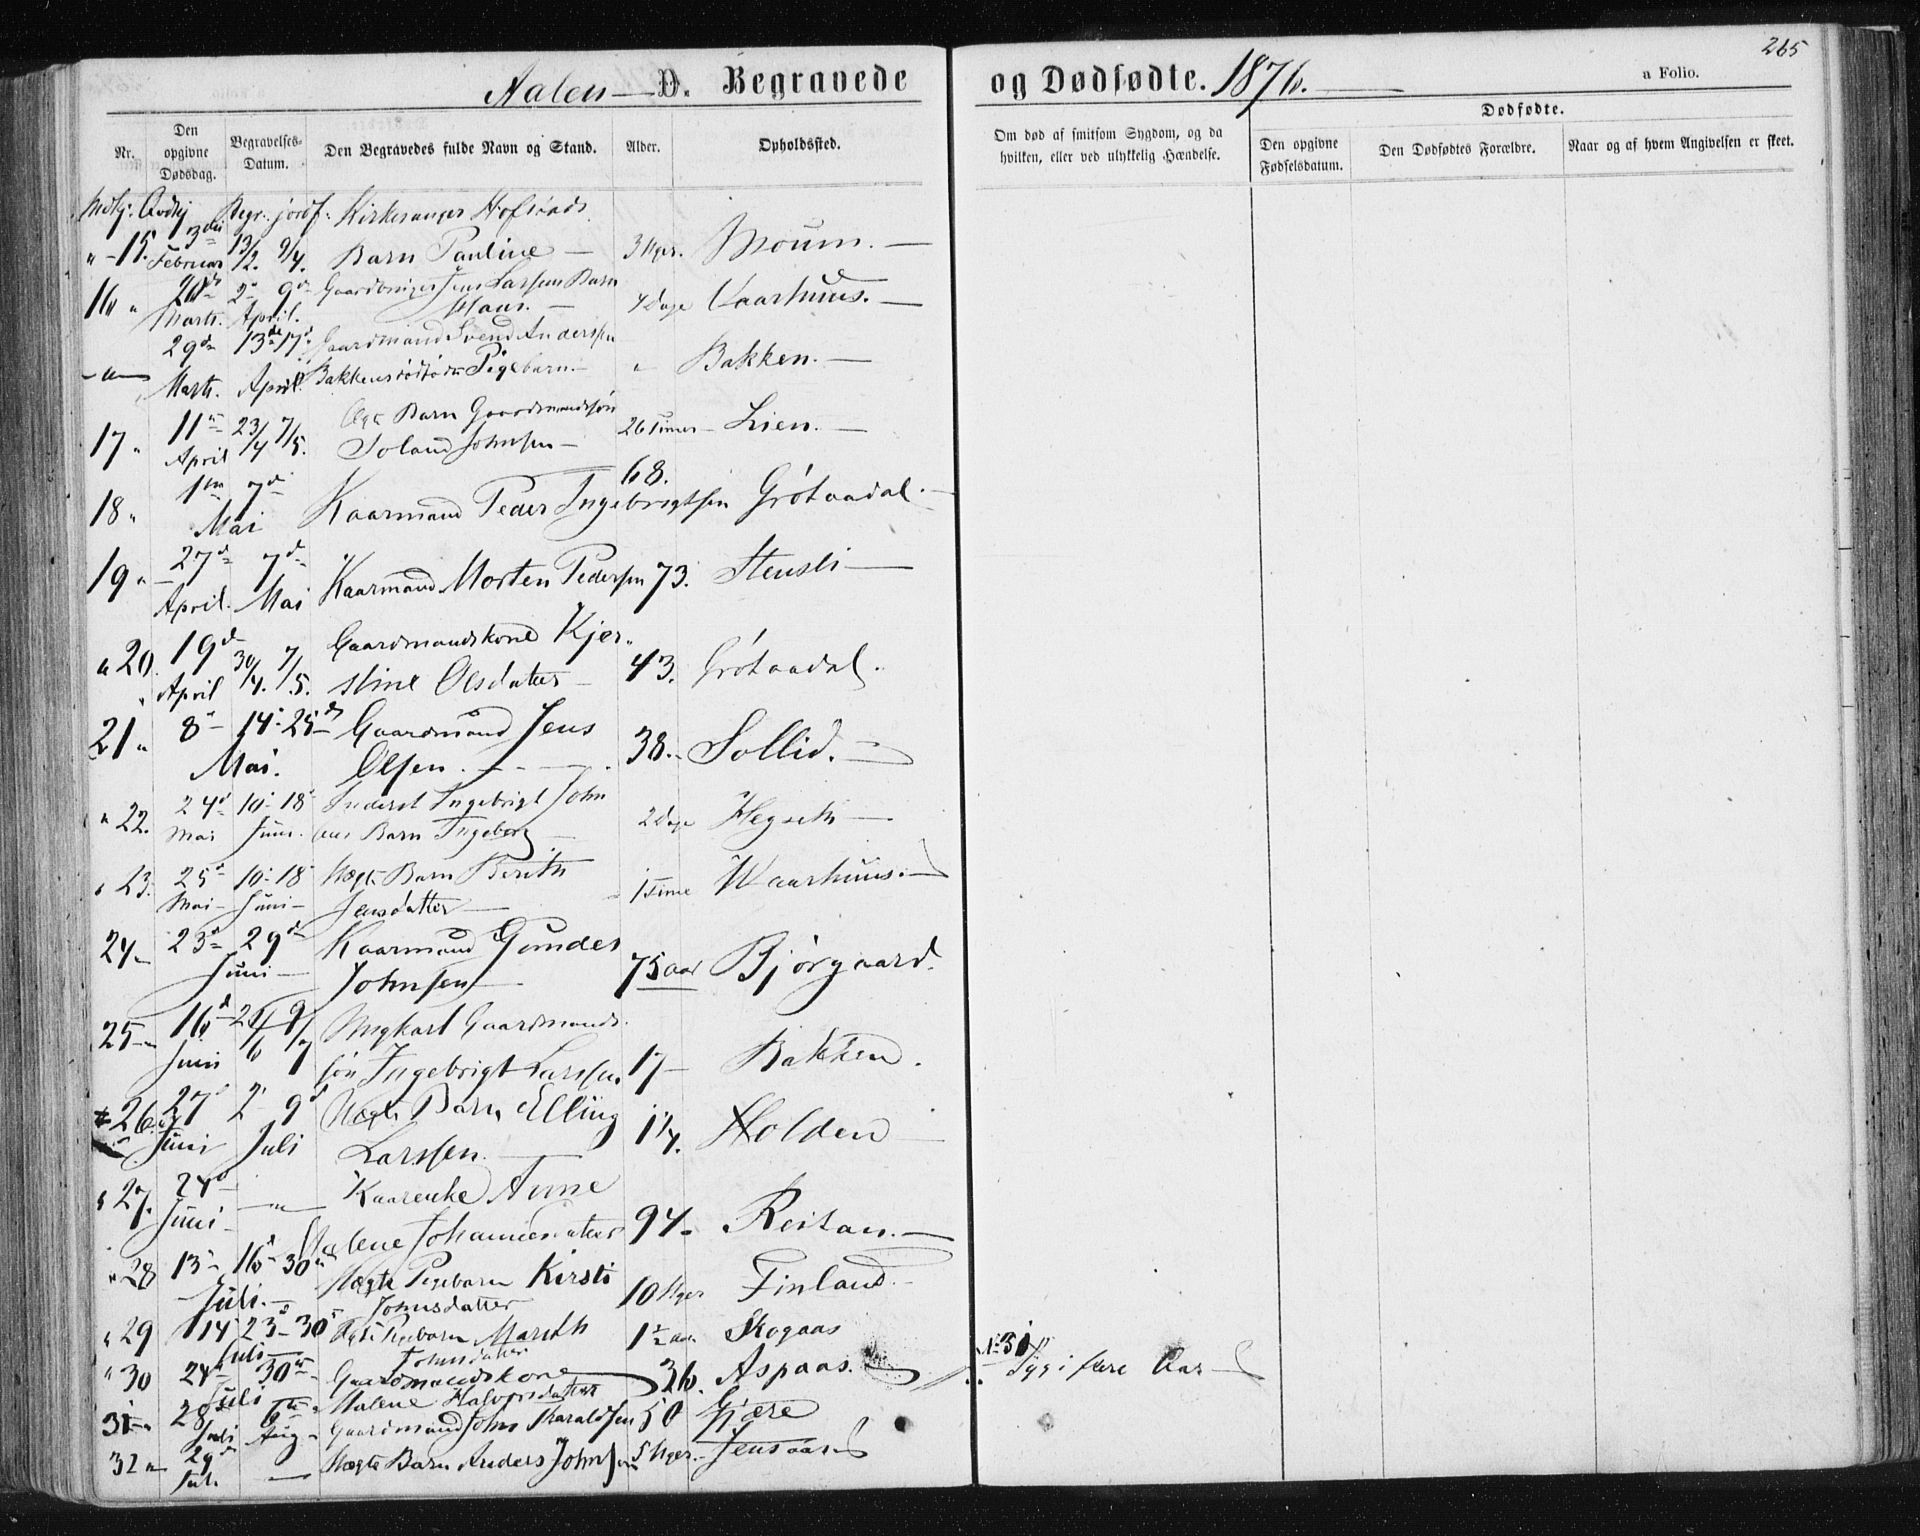 265
Aalen D. Begravede og Dødfødte. 1876.
a Folio.
Nr. Den opgivne Dødsdag. Begravelses-Datum. Den Begravedes fulde Navn og Stand. Alder. Opholdssted. Om død af smitsom Sygdom, og da hvilken, eller ved ulykkelig Hændelse. Dødfødte. Den opgivne Fødselsdatum. Den Dødfødtes Forældre. Naar og af hvem Angivelsen er skeet.
Begr. jordf. Kirkesanger Hofstads
" 15. 3die Februar 13/2. 9/4. Barn Pauline 3 Uger. Moum.
16 " 9de Gaardbruger Jens Larssens Barn
Marts. April. 4 Dage Vaarhuus.
29de 13de 17de Gaardmand Svend Anderssen
" Marts. April. Bakkens dødfødte Pigebarn " Bakken.
17 " 11te 23/4 7/5. Ægte Barn Gaardmandssøn
April John Johnsen 26 Timer Lien.
18 " 1ste 7de Mai Kaarmand Peder Ingebrigtsen 68. Grótaadal.
19 " 27de April. 7de Mai Kaarmand Morten Pedersen 73. Stensli
" 20. 19de April 30/4. 7/5. Gaardmandskone Kjer-
stine Olsdatter 43. Grótaadal.
21 " 8de 14de 25de Gaardmand Jens
Mai. Olsen. 38. Sollid.
" 22. 24de 10de 18de Inderst Ingebrigt John
Mai Juni. Barn Ingeborg 2 Dage Hegseth
" 23. 25de 10de 18de Uægte Barn Berith
Mai Juni Jensdatter 1 Time Waarhuus.
24 " 23de 29de Kaarmand Gunder
Juni Johnsen 75 aar Bjørgaard.
25 " 16de 9/7 Ungkarl Gaardmands-
Juni søn Ingebrigt Larssen 17 Bakken.
" 26. 27de 2de 9de Uægte Barn Elling
Juni Juli Larssen. 1 1/4. Holden
" 27. 24de Juni " Kaarenke Anne
Malene Johannesdatter 94 Reitan.
" 28 13de 16de 30te Uægte Pigebarn Kirsti
Juli. Johnsdatter 10 Uger Finland.
" 29 14de 23de 30te Ægte Pigebarn Marith
Juli Johnsdatter 1 1/2 aar Skogaas
" 30 24de 30te Gaardmandskone
Juli Malene Halvorsdatter 36. Aspaas.
No 31 Syg i flere Aar
31 " 28de Juli 6te Aug. Gaardmand John Haraldsen 50 Gjære
32 " 29de Juli " Uægte Barn Anders Johnsen 5 Uger. Jensaas